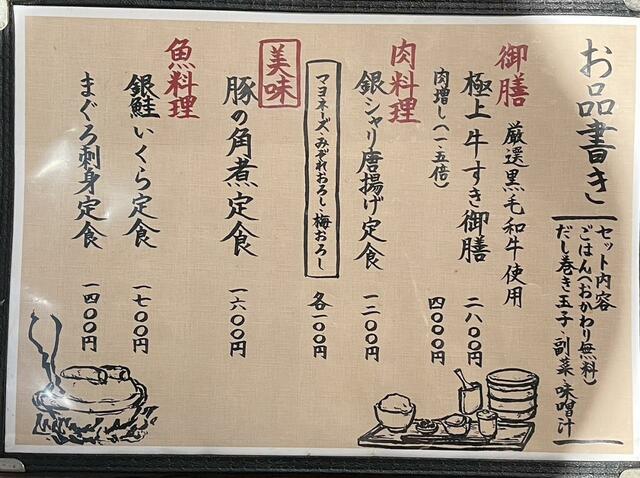 お品書き
セット内容
ごはん(おかわり無料)
だし巻き玉子・副菜・味噌汁
御膳
厳選黒毛和牛使用
極上 牛すき御膳 二八〇〇円
肉増し(一・五倍) 四〇〇〇円
肉料理
銀シャリ唐揚げ定食 一二〇〇円
マヨネーズ・みぞれおろし・梅おろし 各一〇〇円
美味
豚の角煮定食 一六〇〇円
魚料理
銀鮭いくら定食 一七〇〇円
まぐろ刺身定食 一四〇〇円